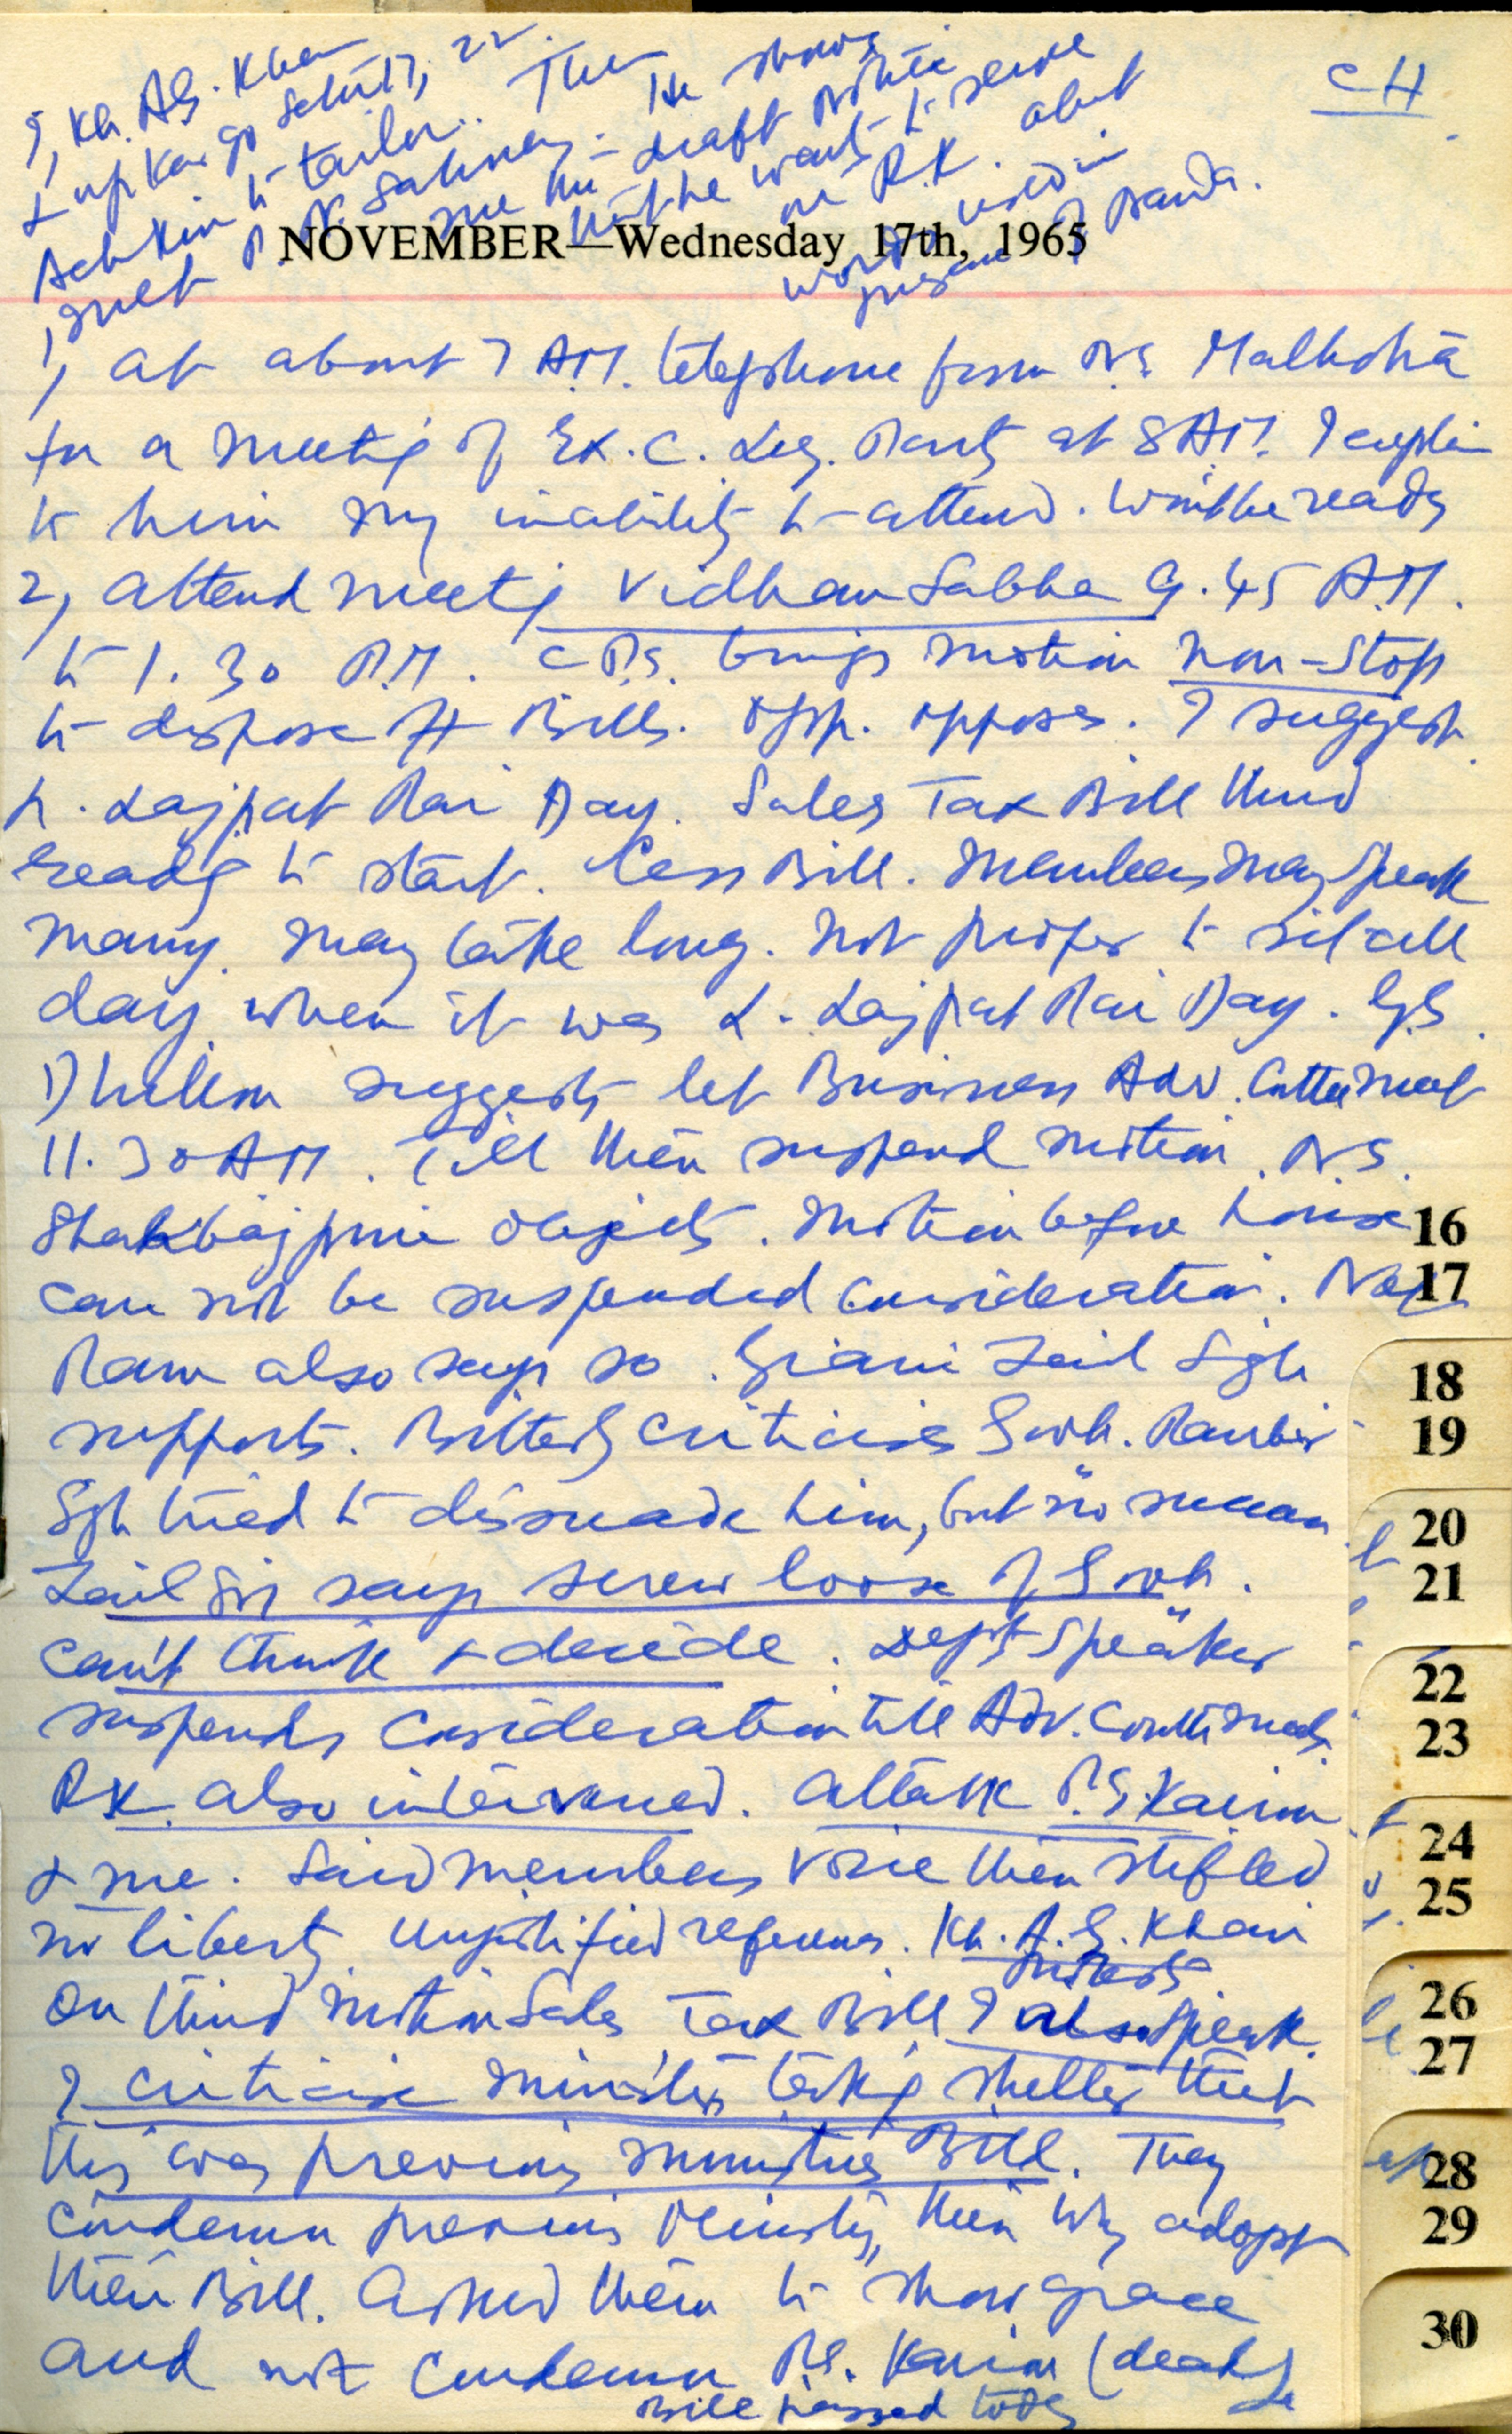 CH
I, Kh. A.G. Khan
+ Upkar go Sector 17, 22.
Achkin to tailor. Then
I meet P.N. Sahney. He shows
me the draft notice
that he wants to serve
on R.K. about
words used in
presence of Nanda.
NOVEMBER—Wednesday 17th, 1965
1, At about 7 A.M. telephone from N.S. Malhotra
for a meeting of Ex. C. Leg. Party at 8 A.M. I explain
to him my inability to attend. Won't be ready
2, Attend meeting Vidhan Sabha 9.45 A.M.
to 1.30 P.M. C.P.S. brings motion non-stop
to dispose of Bills. Opp. opposes. I suggest
L. Lajpat Rai Day. Sales Tax Bill third
reading to start. Cess Bill. Members may speak
many. May take long. Not proper to sit all
day when it was L. Lajpat Rai Day. G.S.
Dhillon suggests let Business Adv. Cttee meet
11.30 AM. Till then suspend motion.
objects. Motion before house
can not be suspended consideration.
Ram also says so. Giani Zail Sgh
supports. Bitterly criticises Govt. Ranbir
Sgh tried to dissuade him, but no success
Zail Sgh says screw loose of Govt.
Can't think & decide. Depty Speaker
suspends consideration till Adv. Comtt meets.
R.K. also intervened. Attack P.S. Kairon
& me. Said members voice then stifled
no liberty. Unjustified references. Kh. A.G. Khan
protests
On third motion Sales Tax Bill I also speak.
I criticise ministers taking shelter that
this was previous ministries Bill. They
condemn previous Ministry, then why adopt
their Bill. Asked them to show grace
and not condemn P.S. Kairon (dead)
Bill passed today
16
17
18
19
20
21
22
23
24
25
26
27
28
29
30